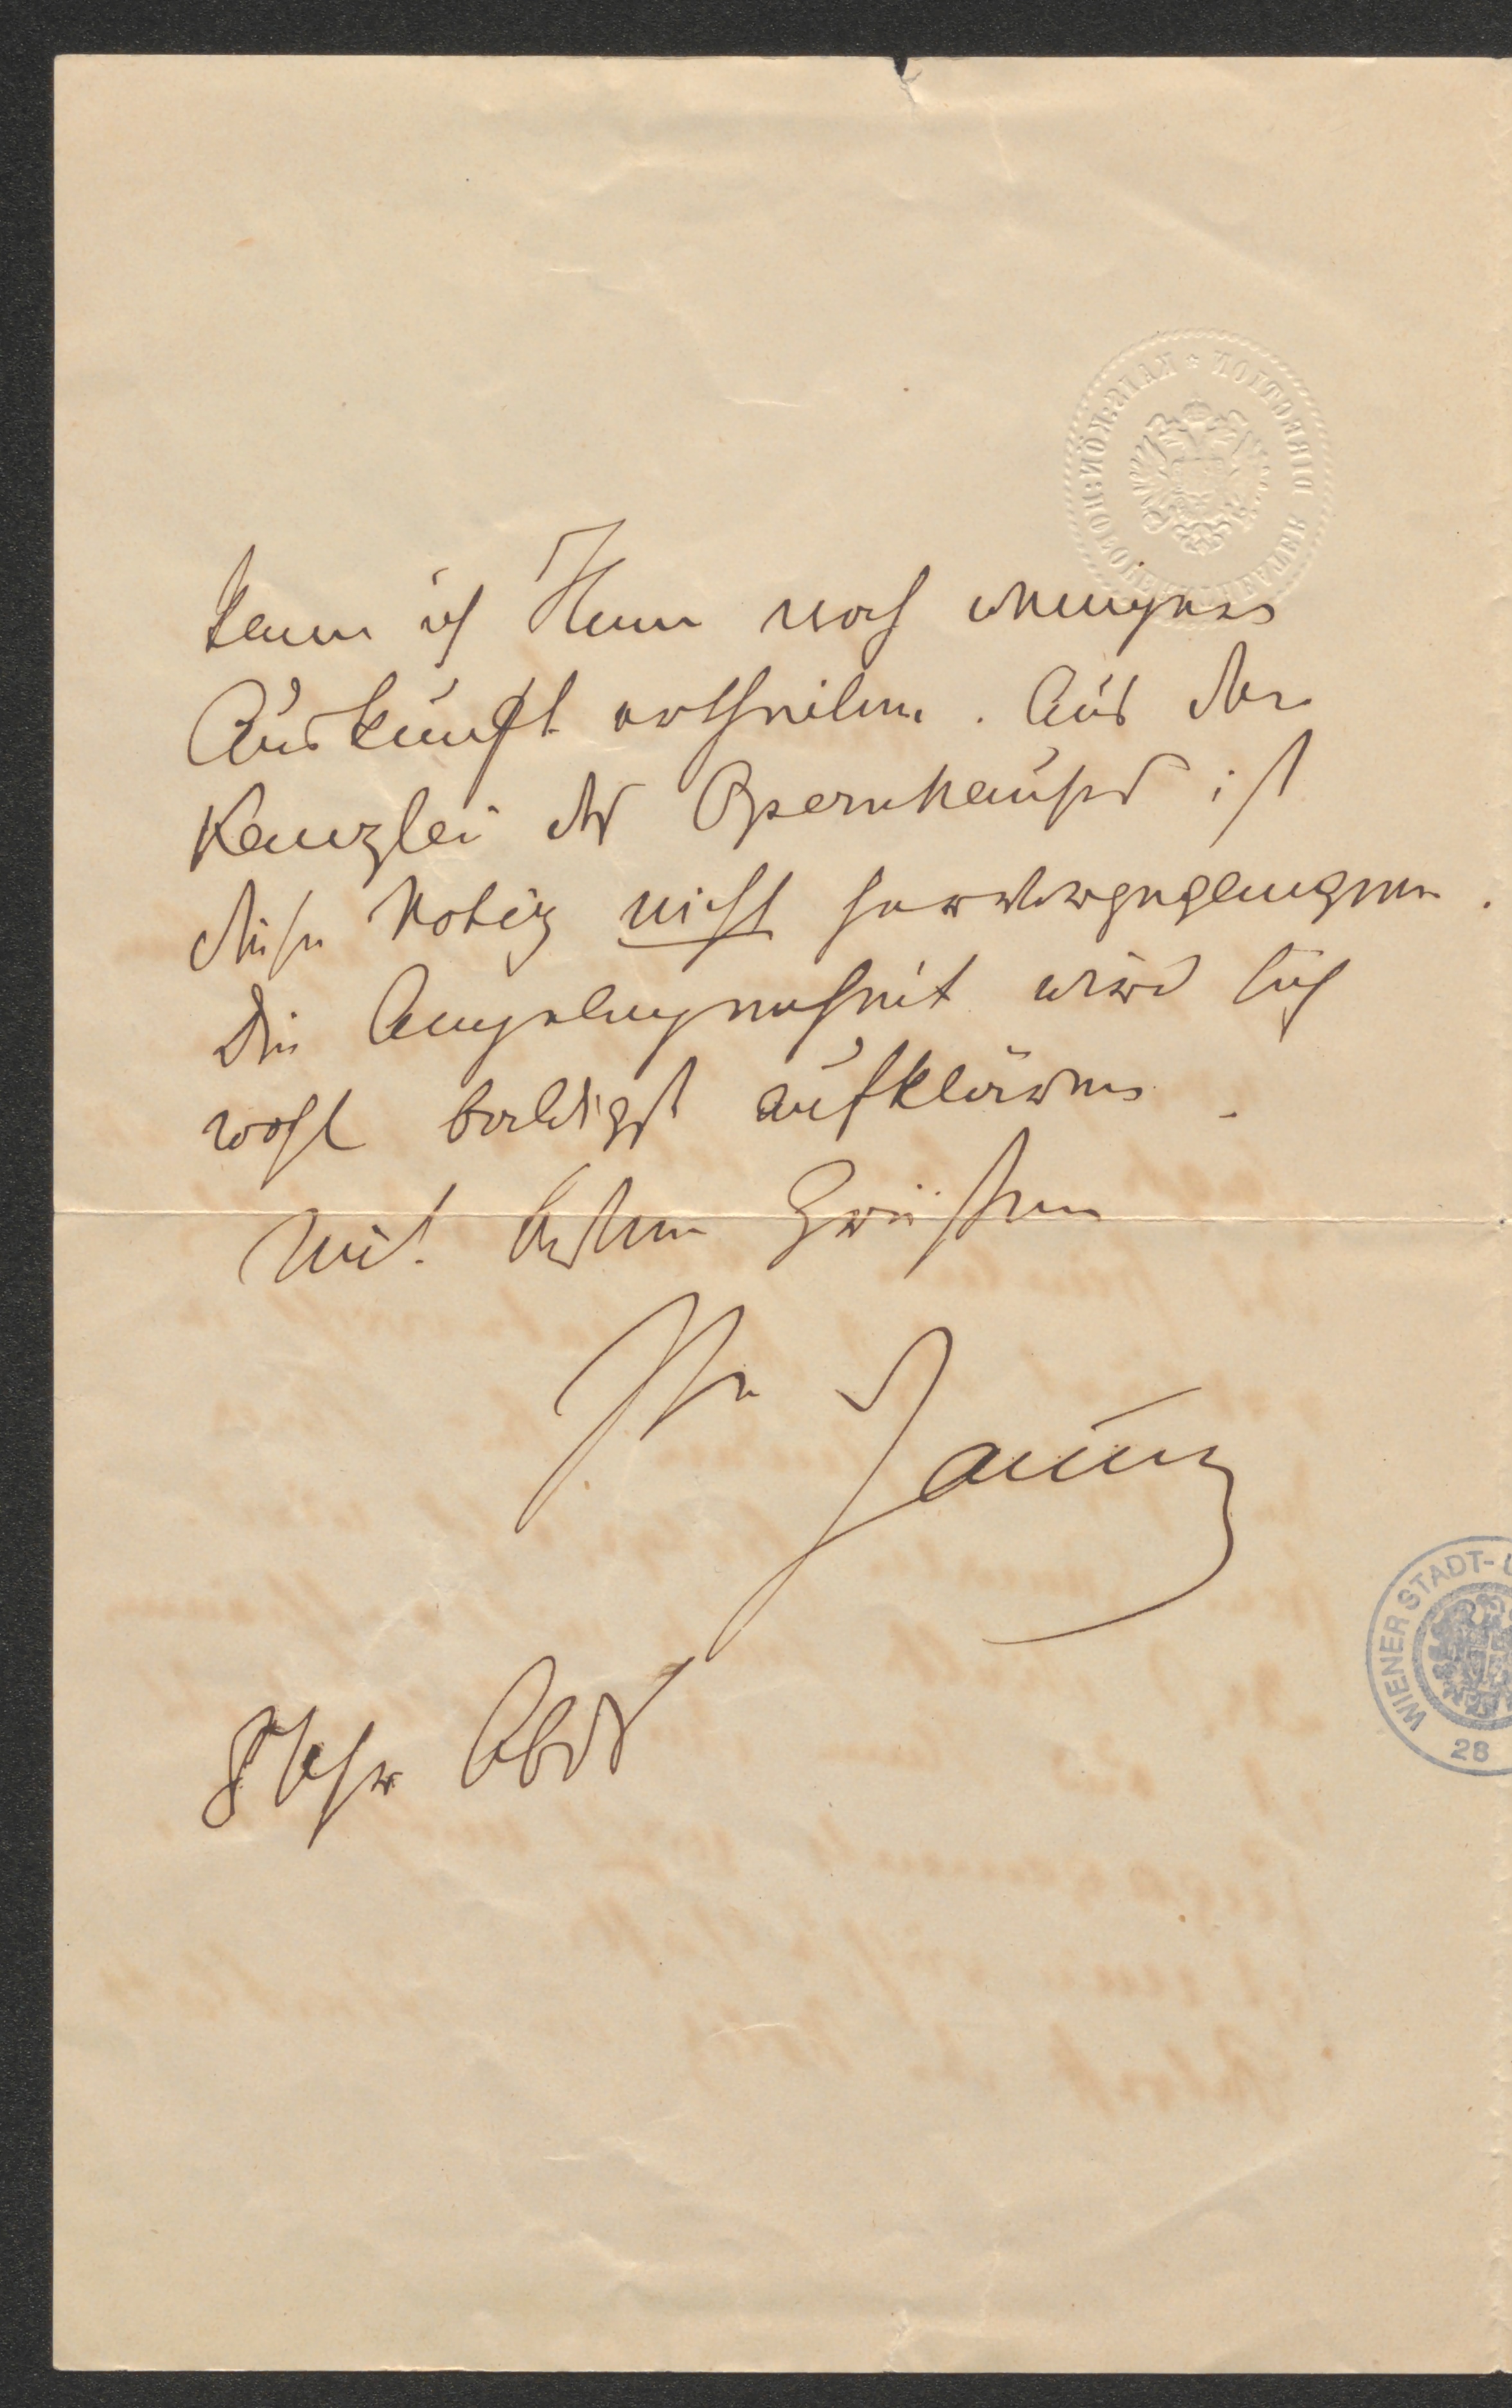 kann ich Ihnen noch weniger
Auskunft ertheilen. Aus der
Kanzlei des Opernhauses ist
diese Notiz nicht hervorgegangen.
Die Angelegenheit wird sich
wohl baldigst aufklären.
Mit besten Grüßen
Ihr Jauner
8 Uhr Abds
DIRECTION * KAIS: KÖN: HOFOPERN
WIENER STADT-
28